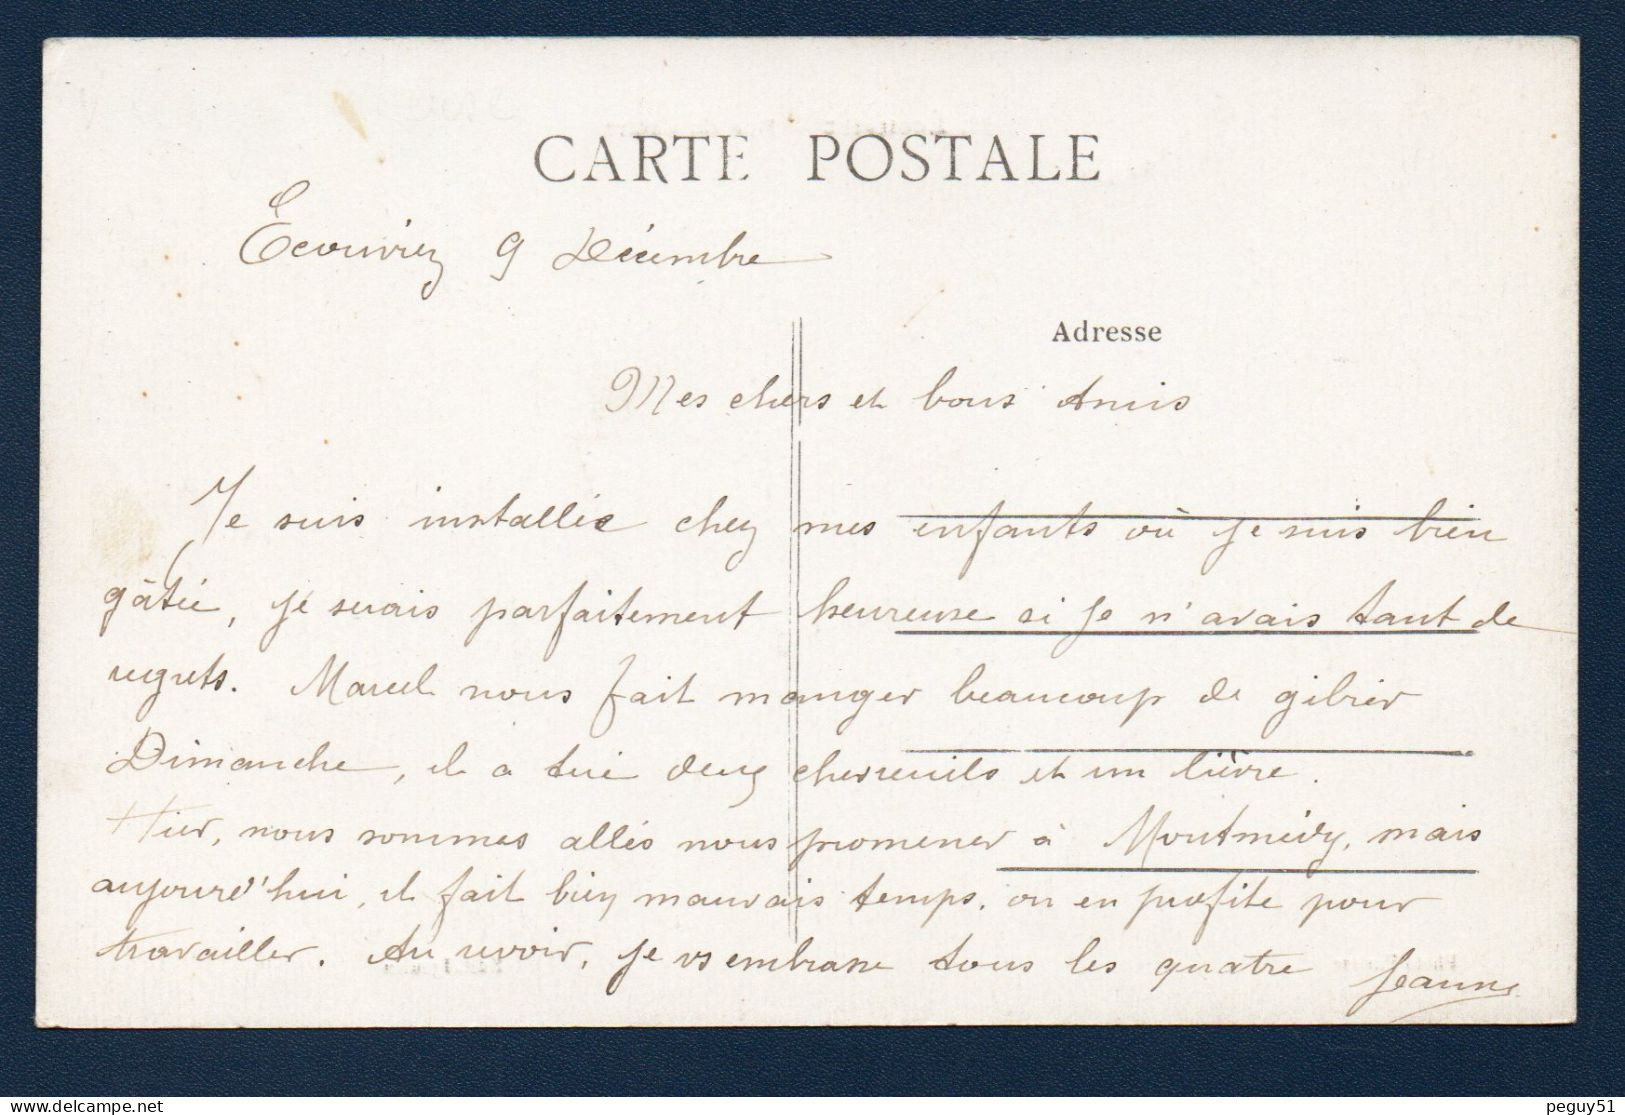 CARTE POSTALE
Ecouviez 9 Décembre
Adresse
Mes chers et bons Amis
Je suis installée chez mes enfants où je suis bien
gâtée, je serais parfaitement heureuse si je n'avais tant de
regrets. Marcel nous fait manger beaucoup de gibier
Dimanche, il a tué deux chevreuils et un lièvre.
Hier, nous sommes allés nous promener à Montmédy, mais
aujourd'hui, il fait bien mauvais temps. on en profite pour
travailler. Au revoir, je vs embrasse tous les quatre Jeanne
peguy51